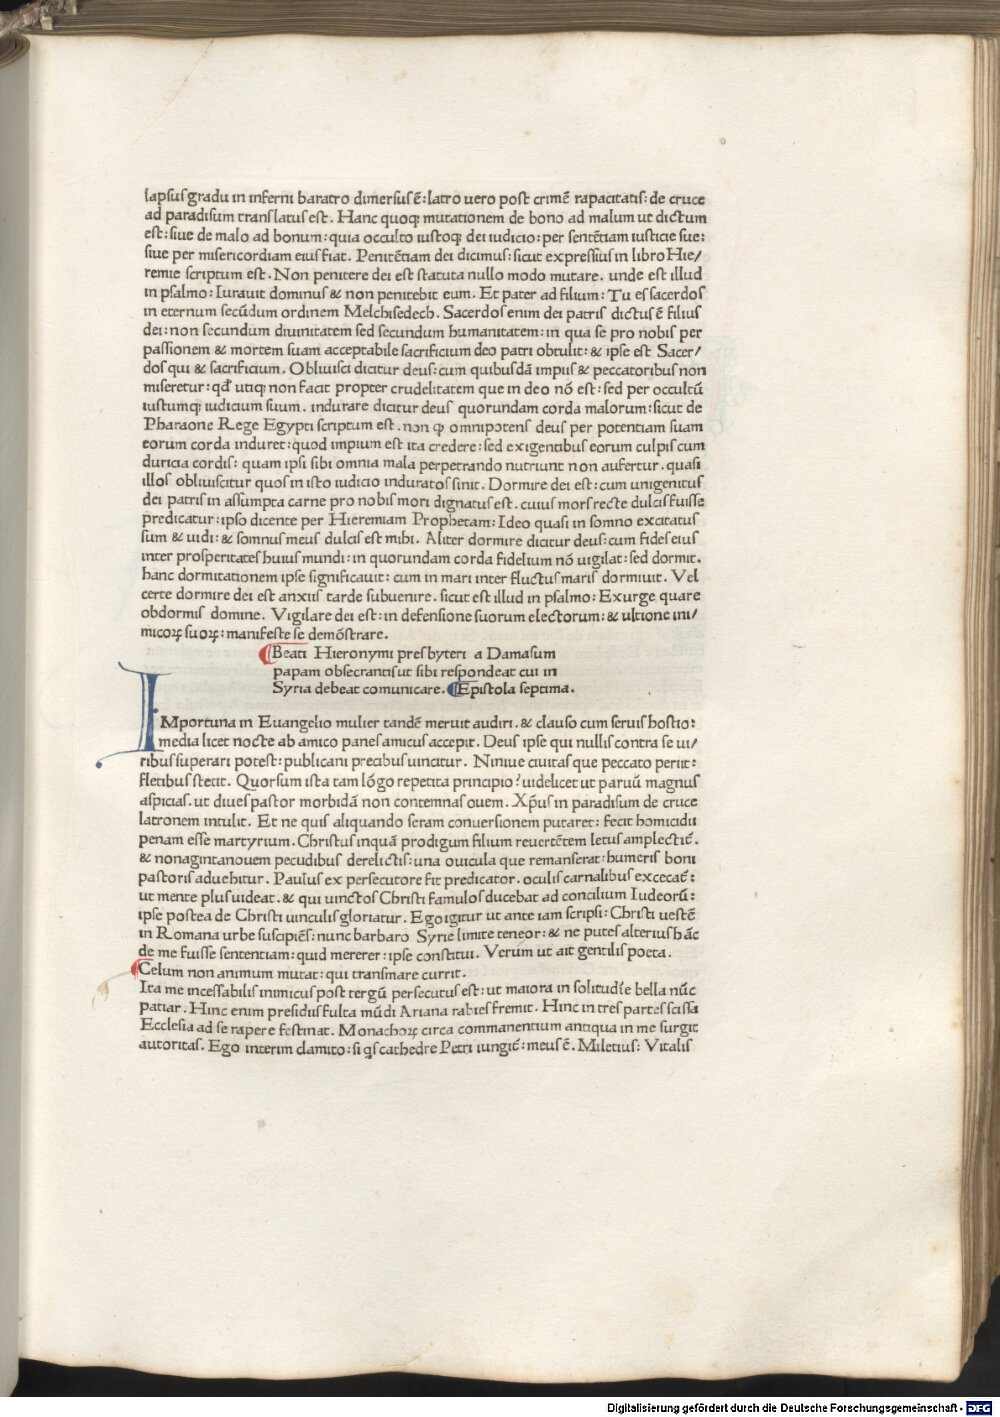 lapsus gradu in inferni baratro dimersus ē: latro uero post crimē rapacitatis: de cruce
ad paradisum translatus est. Hanc quoqꝫ mutationem de bono ad malum ut dictum
est: siue de malo ad bonum: quia occulto iustoqꝫ dei iudicio: per sentētiam iusticie sue:
siue per misericordiam eius fiat. Penitētiam dei dicimus: sicut expressius in libro Hie/
remie scriptum est. Non penitere dei est statuta nullo modo mutare. unde est illud
in psalmo: Iurauit dominus & non penitebit eum. Et pater ad filium: Tu es sacerdos
in eternum secūdum ordinem Melchisedech. Sacerdos enim dei patris dictus ē filius
dei: non secundum diuinitatem sed secundum humanitatem: in qua se pro nobis per
passionem & mortem suam acceptabile sacrificium deo patri obtulit: & ipse est Sacer/
dos qui & sacrificium. Obliuisci dicitur deus: cum quibusdā impiis & peccatoribus non
miseretur: qđ utiqꝫ non facit propter crudelitatem que in deo nō est: sed per occultū
iustumqꝫ iudicium suum. indurare dicitur deus quorundam corda malorum: sicut de
Pharaone Rege Egypti scriptum est. non ꝙ omnipotens deus per potentiam suam
eorum corda induret: quod impium est ita credere: sed exigentibus eorum culpis cum
duricia cordis: quam ipsi sibi omnia mala perpetrando nutriunt non aufertur. quasi
illos obliuiscitur quos in isto iudicio induratos sinit. Dormire dei est: cum unigenitus
dei patris in assumpta carne pro nobis mori dignatus est. cuius mors recte dulcis fuisse
predicatur: ipso dicente per Hieremiam Prophetam: Ideo quasi in somno excitatus
sum & uidi: & somnus meus dulcis est mihi. Aliter dormire dicitur deus: cum fides eius
inter prosperitates huius mundi: in quorundam corda fidelium nō uigilat: sed dormit.
hanc dormitationem ipse significauit: cum in mari inter fluctus maris dormiuit. Vel
certe dormire dei est anxiis tarde subuenire. sicut est illud in psalmo: Exurge quare
obdormis domine. Vigilare dei est: in defensione suorum electorum: & ultione ini/
micoꝝ suoꝝ: manifeste se demōstrare.
Beati Hieronymi presbyteri a Damasum
papam obsecrantis ut sibi respondeat cui in
Syria debeat comunicare. Epistola septima.
IMportuna in Euangelio mulier tandē meruit audiri. & clauso cum seruis hostio:
media licet nocte ab amico panes amicus accepit. Deus ipse qui nullis contra se ui/
ribus superari potest: publicani precibus uincitur. Niniue ciuitas que peccato periit:
fletibus stetit. Quorsum ista tam lōgo repetita principio? uidelicet ut paruū magnus
aspicias. ut diues pastor morbidā non contemnas ouem. Xp̄us in paradisum de cruce
latronem intulit. Et ne quis aliquando seram conuersionem putaret: fecit homicidii
penam esse martyrium. Christus inquā prodigum filium reuertētem letus amplectit̄.
& nonagintanouem pecudibus derelictis: una ouicula que remanserat: humeris boni
pastoris aduehitur. Paulus ex persecutore fit predicator. oculis carnalibus excecat̄:
ut mente plus uideat. & qui uinctos Christi famulos ducebat ad concilium Iudeorū:
ipse postea de Christi uinculis gloriatur. Ego igitur ut ante iam scripsi: Christi uestē
in Romana urbe suscipiēs: nunc barbaro Syrie limite teneor: & ne putes alterius hāc
de me fuisse sententiam: quid mererer: ipse constitui. Verum ut ait gentilis poeta.
Celum non animum mutat: qui transmare currit.
Ita me incessabilis inimicus post tergū persecutus est: ut maiora in solitudīe bella nūc
patiar. Hinc enim presidiis fulta mūdi Ariana rabies fremit. Hinc in tres partes scissa
Ecclesia ad se rapere festinat. Monachoꝝ circa commanentium antiqua in me surgit
autoritas. Ego interim clamito: si q̄s cathedre Petri iungit̄: meus ē. Miletius: Vitalis
Digitalisierung gefördert durch die Deutsche Forschungsgemeinschaft - DFG